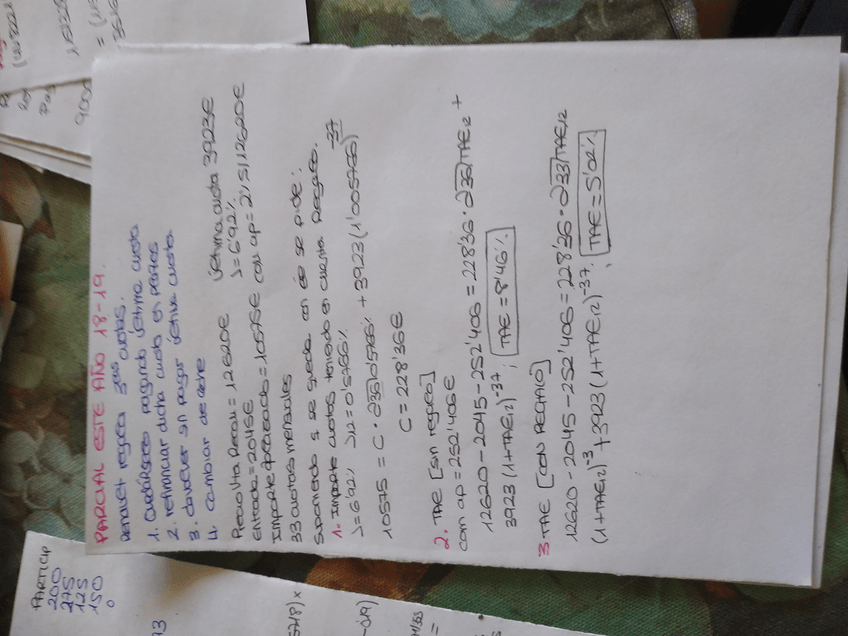 PARCIAL ESTE AÑO 18-19.
Renault regala seis cuotas.
1. Quedárselo pagando última cuota
2. refinanciar dicha cuota en partes
3. devolver sin pagar última cuota
4. cambiar de coche
Precio Vta Recom = 12620€ última cuota 3923€
Entrada = 2045€ J=6'92%
Importe financiado = 10575€ com ap = 2%S/12620€
33 cuotas mensuales
Suponiendo q se queda con él se pide:
1- Importe cuotas teniendo en cuenta Regalo.
J=6'92% J12 = 0'5766%
10575 = C · a36|0'5766% + 3923 (1'005766)-37
C = 228'36€
2. TAE [sin regalo]
com ap = 252'406€
12620 - 2045 - 252'406 = 228'36 · a36|TAE12 +
3923 (1+TAE12)-37 ; TAE = 8'46%
3 TAE [CON REGALO]
12620 - 2045 - 252'406 = 228'36 · a33|TAE12
(1+TAE12)-3 + 3923 (1+TAE12)-37 ; TAE = 5'02%
PARTICIP
200
275
125
150
0